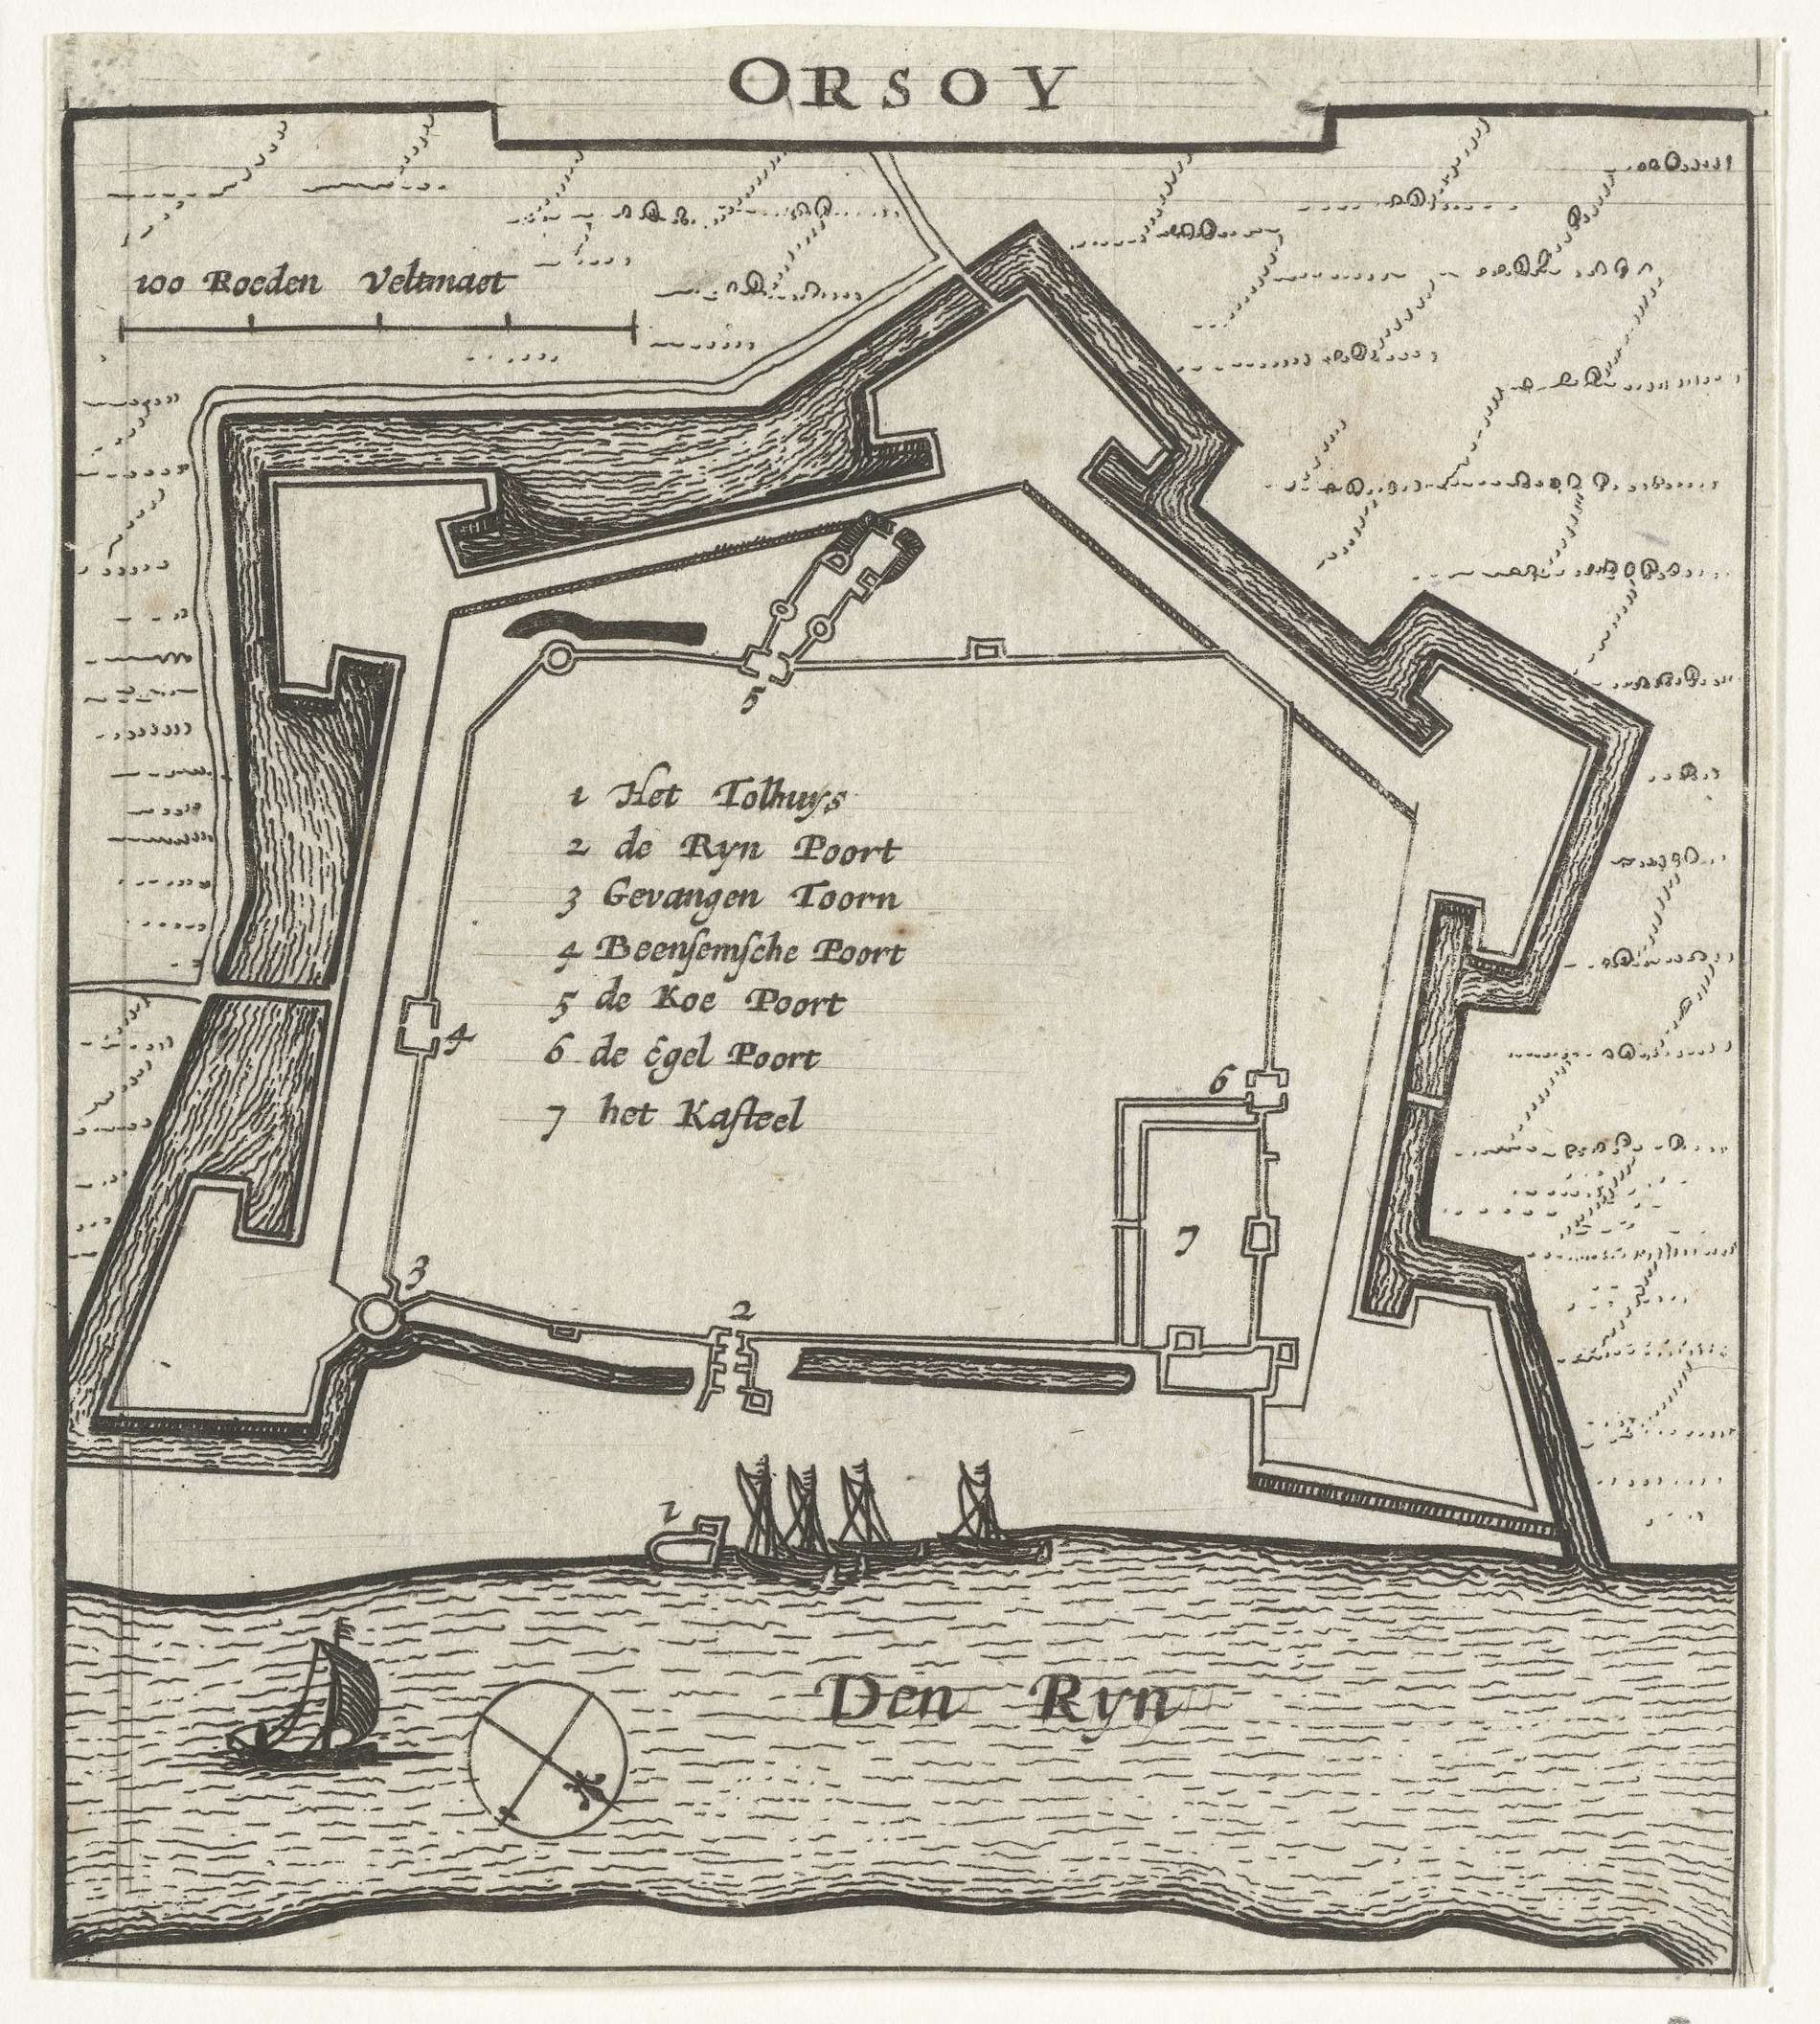 ORSOY
100 Roeden Veltmaet
5
1 Het Tolhuys
2 de Ryn Poort
3 Gevangen Toorn
4 Beenſemſche Poort
5 de Koe Poort
6 de Egel Poort
7 het Kaſteel
4
6
7
3
2
1
Den Ryn